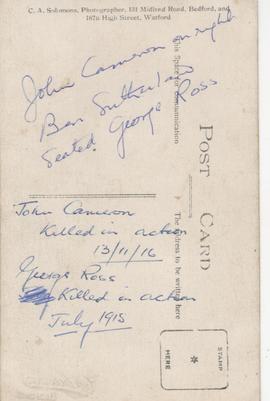 C. A. Solomons, Photographer, 131 Midland Road, Bedford, and
187a High Street, Watford
John Cameron on right
Ben Sutherland
Seated. George Ross
This Space for Communication
POST CARD
The address to be written here
John Cameron
Killed in action
13/11/16
George Ross
Killed in action
July 1915
STAMP
HERE